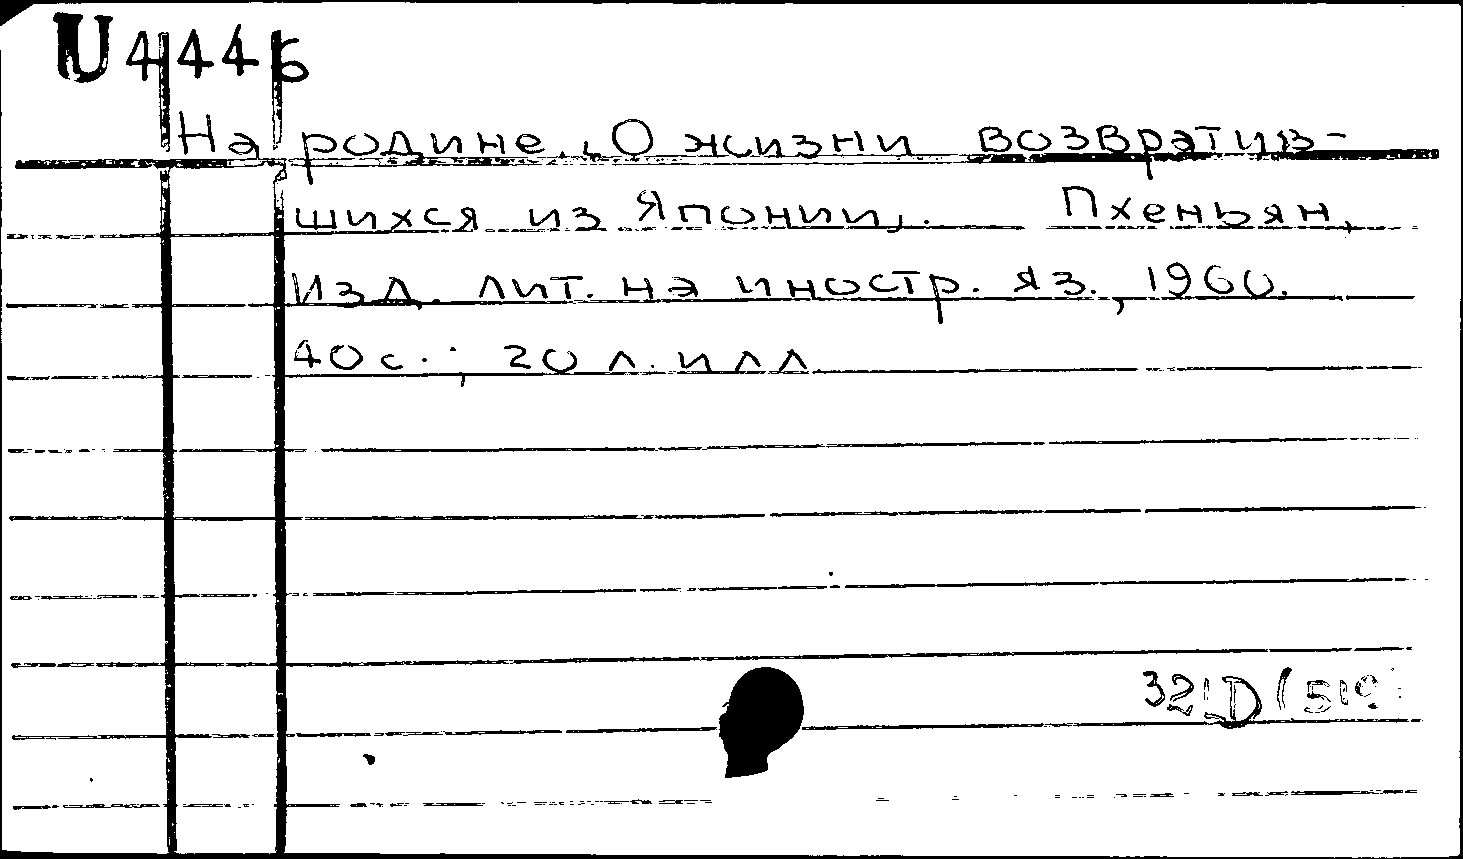 U 4446
На родине. „О жизни возвратив-
шихся из Японии„. Пхеньян,
Изд. лит. на иностр. яз., 1960.
40 с.; 20 л. илл
32 D (519